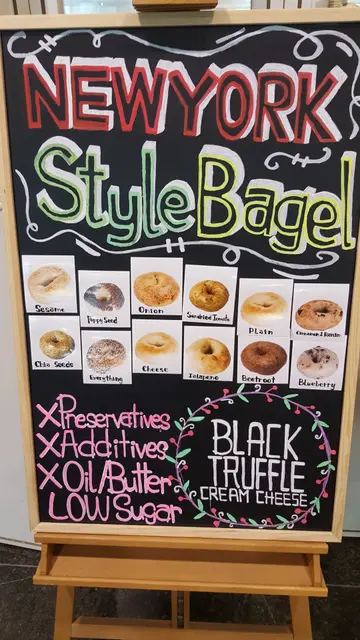 NEWYORK
Style Bagel
Sesame Poppy Seed Onion Sundried Tomato Plain Cinnamon & Raisin
Chia Seeds Everything Cheese Jalapeno Beetroot Blueberry
X Preservatives
X Additives
X Oil/Butter
LOW Sugar
BLACK
TRUFFLE
CREAM CHEESE